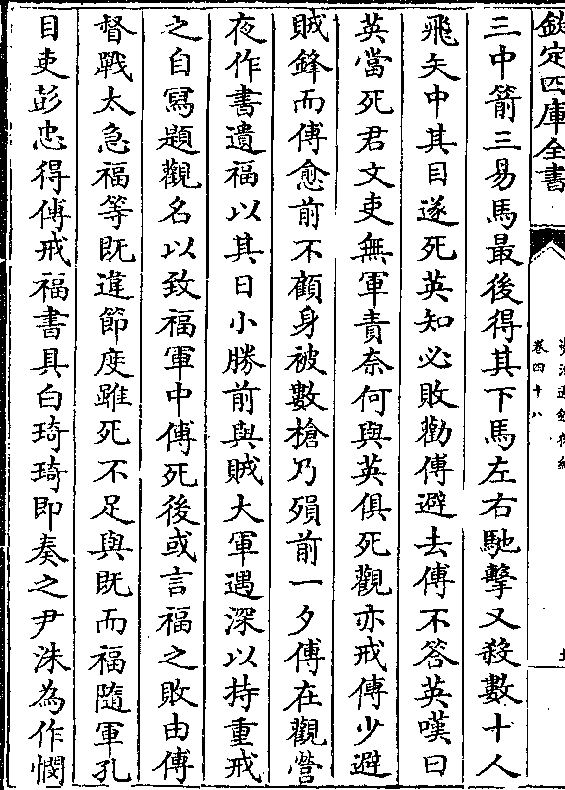 欽定四庫全書
卷四十八
三中箭三易馬最後得其下馬左右馳擊又殺數十人
飛矢中其目遂死英知必敗勸傅避去傅不答英嘆曰
英當死君文吏無軍責奈何與英俱死觀亦戒傅少避
賊鋒而傅愈前不顧身被數槍乃殞前一夕傅在觀營
夜作書遺福以其日小勝前與賊大軍遇深以持重戒
之自寫題觀名以致福軍中傅死後或言福之敗由傅
督戰太急福等既違節度雖死不足與既而福隨軍孔
目吏彭忠得傅戒福書具白琦琦即奏之尹洙為作憫